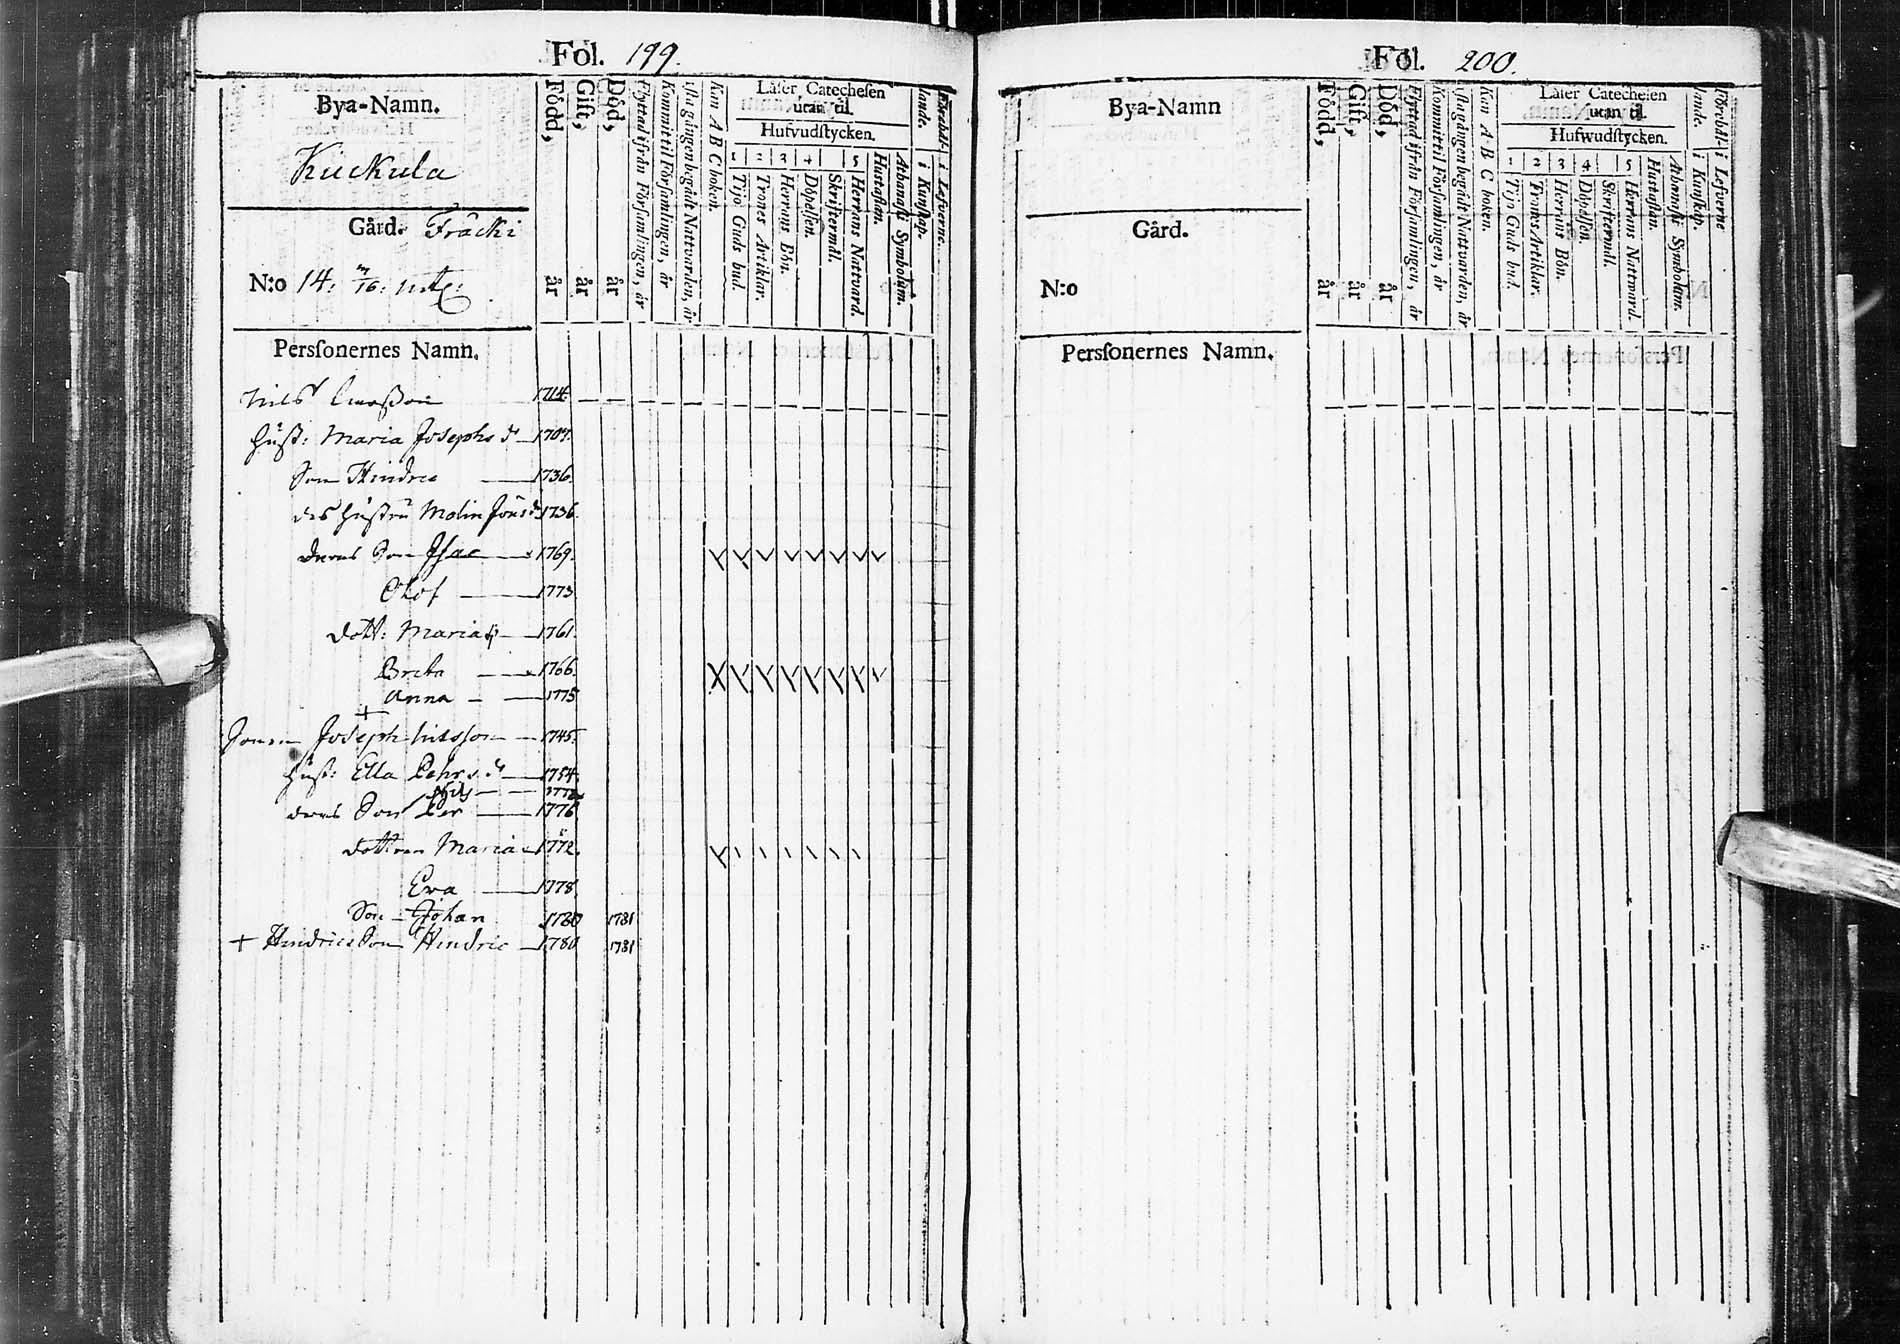 Fol. 199.
Bya-Namn.
Kuckula
Gård. Fräcki
N:o 14.
Född, år
Gift, år
Död, år
Flyttad ifrån Församlingen, år
Kommit til Församlingen, år
1sta gången begådt Nattvarden, år
Kan A B C boken.
Läser Catechesen
utan til.
Hufvudstycken.
1 2 3 4 5
Tijo Guds bud.
Trones Artiklar.
Herrans Bön.
Döpelsen.
Skriftermål.
Herrans Nattvard
Hustaflan.
Athanasii Symbolum.
i Kunskap.
i Lefverne.
Personernes Namn.
Nils 1714
Hust: Maria Josephs d 1707.
Son Hindric 1736.
des Hustru Malin 1736.
deras Son Isac 1769.
Olof 1773
dott: Maria 1761.
Breta 1766.
Anna 1775
Joseph Nilsson 1745.
Hust: Ella Pehrs d 1754.
Nils 1772
deras Son Per 1776
dottren Maria 1772.
Eva 1778
Son Johan 1780 1781
+ Hindrics Son Hindric 1780 1781
Fol. 200.
Bya-Namn
Gård.
N:o
Född, år
Gift, år
Död, år
Flyttad ifrån Församlingen, år
Kommit til Församlingen, år
1sta gången begådt Nattvarden, år
Kan A B C boken.
Läser Catechesen
utan til.
Hufwudstycken.
1 2 3 4 5
Tijo Guds bud.
Trones Artiklar.
Herrans Bön.
Döpelsen
Skriftermål.
Herrans Nattvard.
Hustaflan.
Athanasii Symbolum.
i Kunskap.
i Lefverne
Personernes Namn.